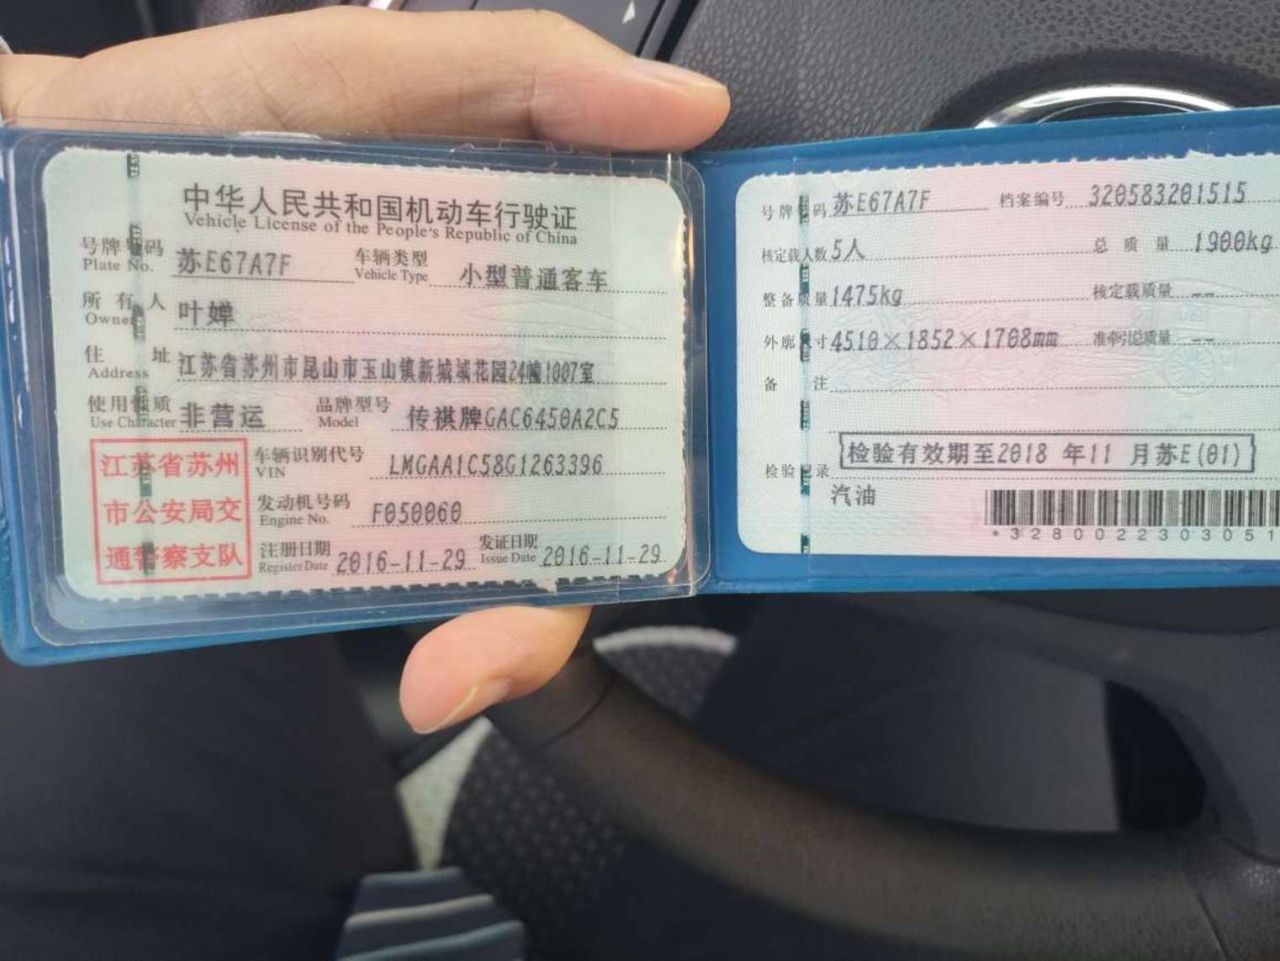 中华人民共和国机动车行驶证
Vehicle License of the People's Republic of China
号牌号码 Plate No. 苏E67A7F 车辆类型 Vehicle Type 小型普通客车
所有人 Owner 叶婵
住址 Address 江苏省苏州市昆山市玉山镇新城域花园24幢1007室
使用性质 Use Character 非营运 品牌型号 Model 传祺牌GAC6450A2C5
江苏省苏州
市公安局交
通警察支队
车辆识别代号 VIN LMGAA1C58G1263396
发动机号码 Engine No. F050060
注册日期 Register Date 2016-11-29 发证日期 Issue Date 2016-11-29
号牌号码 苏E67A7F 档案编号 320583201515
核定载人数 5人 总质量 1900kg
整备质量 1475kg 核定载质量 --
外廓尺寸 4510×1852×1708mm 准牵引总质量 --
备注
检验记录 检验有效期至2018 年11 月苏E(01)
汽油
*3280022303051